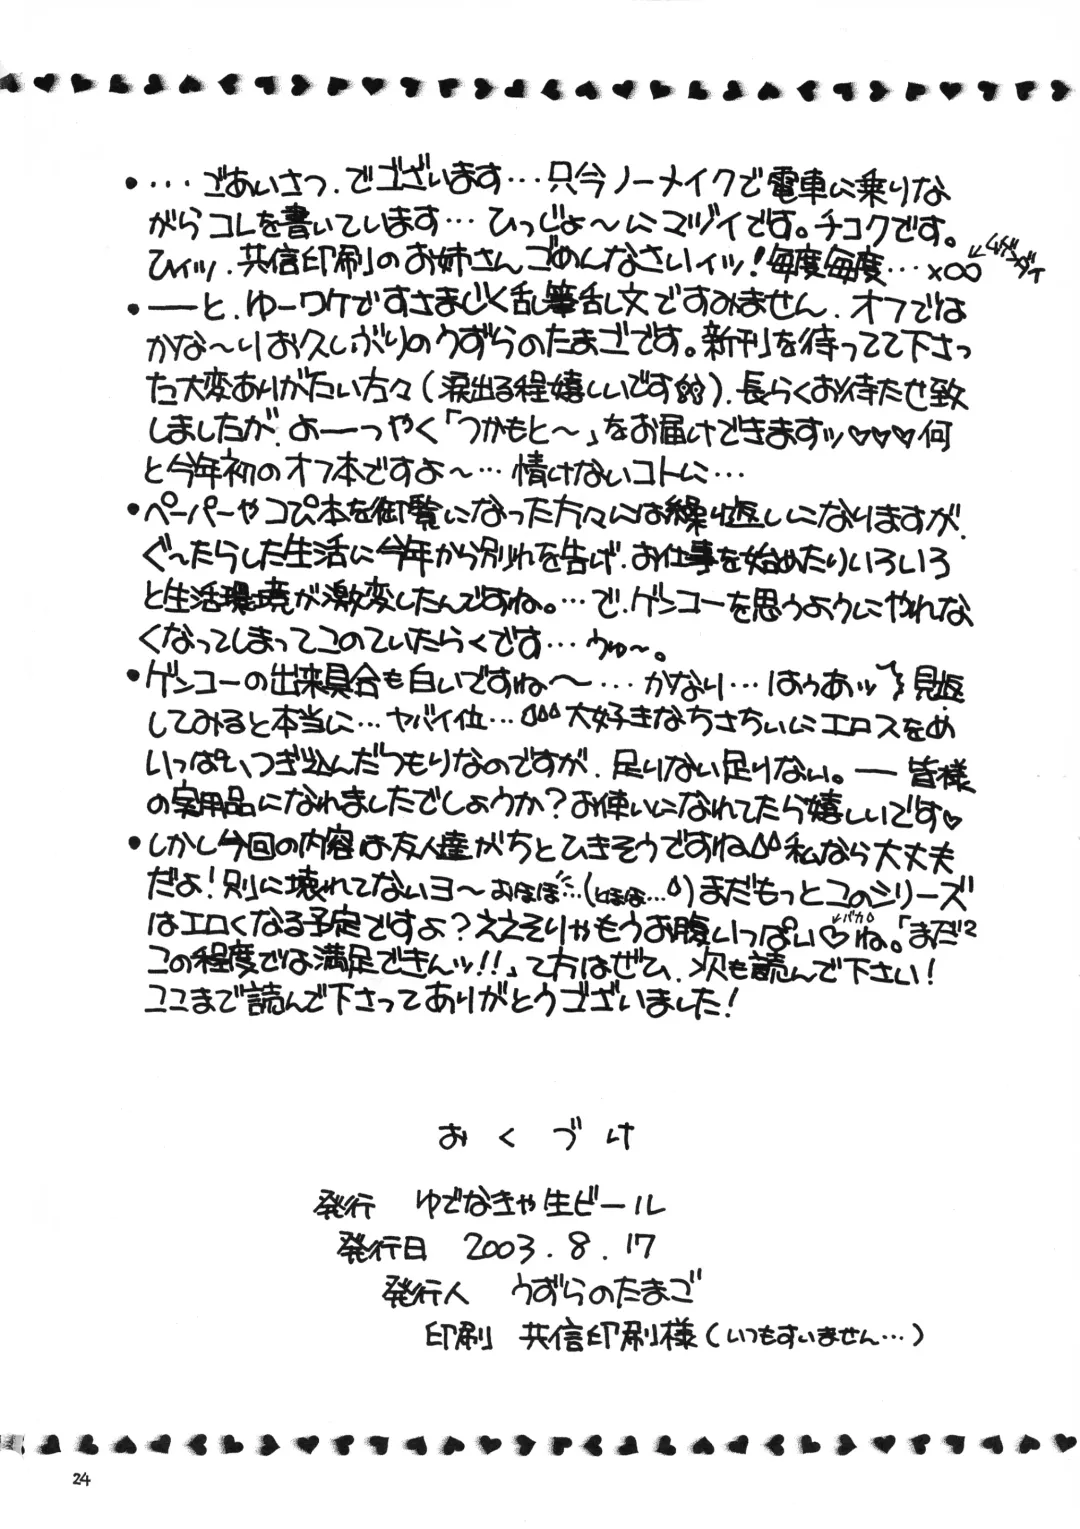 ・・・・ごあいさつ、でございます・・・只今ノーメイクで電車に乗りな
がらコレを書いています・・・ひっじょ〜にマヅイです。チコクです。
ひィッ、共信印刷のお姉さんごめんなさいィッ!毎度毎度・・・×∞
←ムゲンダイ
・──と、ゆーワケですさまじく乱筆乱文ですみません、オフでは
かな〜りお久しぶりのうずらのたまごです。新刊を待ってて下さっ
た大変ありがたい方々(涙出る程嬉しいです)、長らくお待たせ致
しましたが、よーーつやく「つかもと〜」をお届けできますッ♡♡♡何
と今年初のオフ本ですよ〜・・・情けないコトに・・・
・ペーパーやコピ本を御覧になった方々には繰り返しになりますが、
ぐ〜たらした生活に今年から別れを告げ、お仕事を始めたりいろいろ
と生活環境が激変したんですね。・・・で、ゲンコーを思うようにやれな
くなってしまってこのていたらくです・・・うゅ〜。
・ゲンコーの出来具合も白いですね〜・・・かなり・・・はぅあッ 見返
してみると本当に・・・ヤバイ位・・・大好きなちさちぃにエロスをめ
いっぱいつぎ込んだつもりなのですが、足りない足りない。──皆様
の実用品になれましたでしょうか?お使いになれてたら嬉しいです♡
・しかし今回の内容は友人達がちとひきそうですね 私なら大丈夫
だよ!別に壊れてないヨ〜おほほ・・・(とほほ・・・)まだもっとこのシリーズ
はエロくなる予定ですよ?ええそりゃもうお腹いっぱい♡ね。「まだ²
←バカ
この程度では満足できんッ!!」て方はぜひ、次も読んで下さい!
ここまで読んで下さってありがとうございました!
おくづけ
発行 ゆでなきゃ生ビール
発行日 2003.8.17
発行人 うずらのたまご
印刷 共信印刷様(いつもすいません・・・)
24